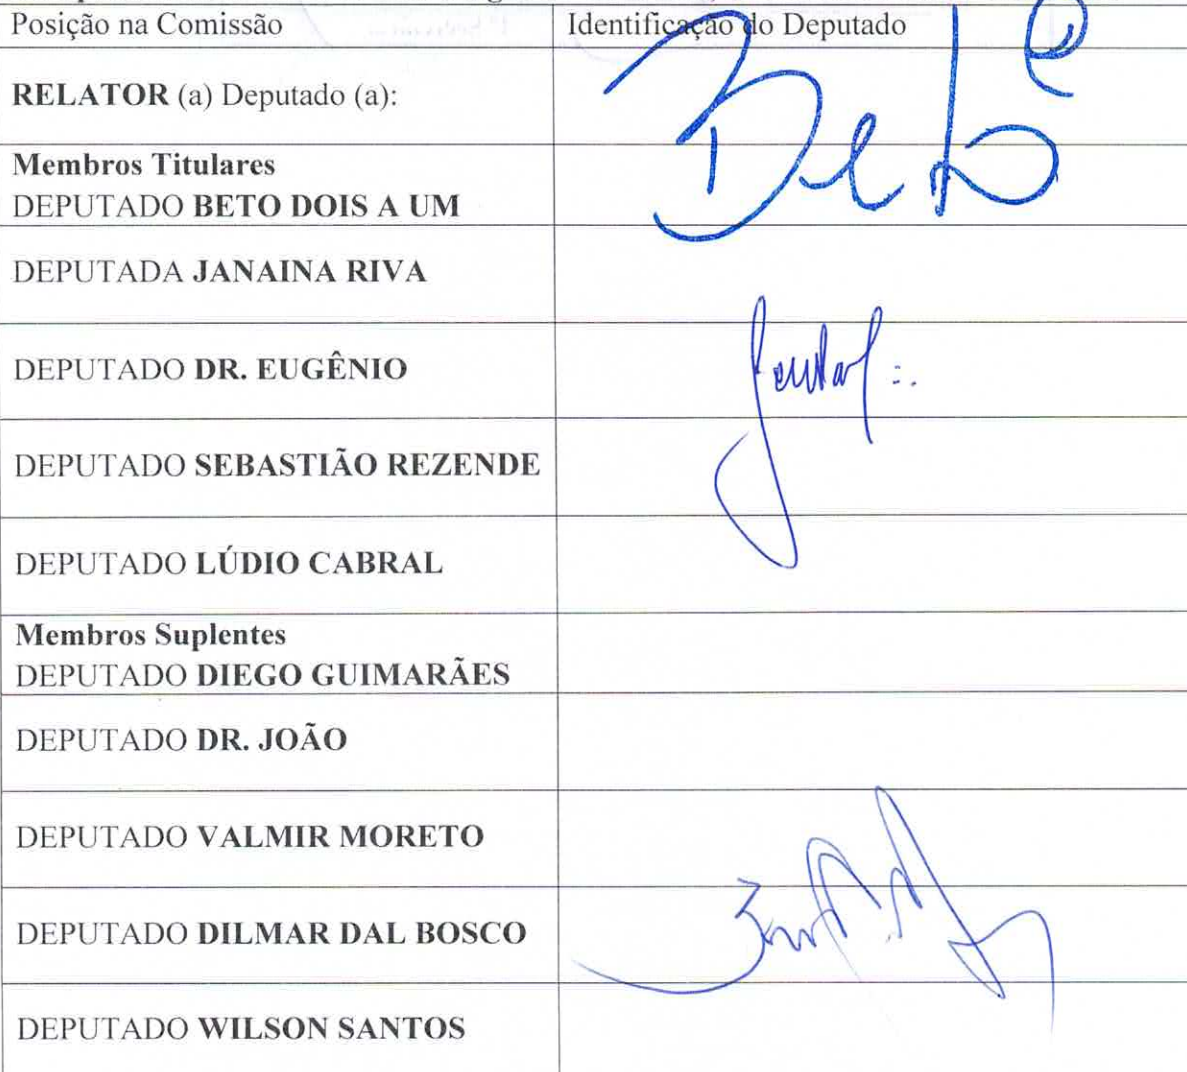 Posição na Comissão
Identificação do Deputado
RELATOR (a) Deputado (a):
Membros Titulares
DEPUTADO BETO DOIS A UM
DEPUTADA JANAINA RIVA
DEPUTADO DR. EUGÊNIO
DEPUTADO SEBASTIÃO REZENDE
DEPUTADO LÚDIO CABRAL
Membros Suplentes
DEPUTADO DIEGO GUIMARÃES
DEPUTADO DR. JOÃO
DEPUTADO VALMIR MORETO
DEPUTADO DILMAR DAL BOSCO
DEPUTADO WILSON SANTOS